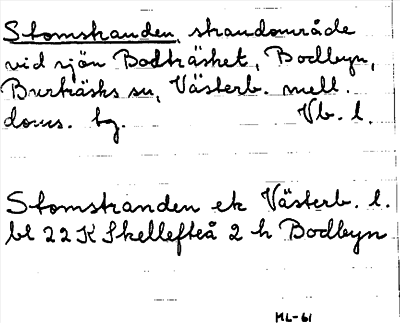 Stomstranden, strandområde
vid sjön Bodträsket, Bodbyn,
Burträsks sn, Västerb. mell.
doms. tg. Vb. l.
Stomstranden ek Västerb. l.
bl 22 K Skellefteå 2 h Bodbyn
ML-61